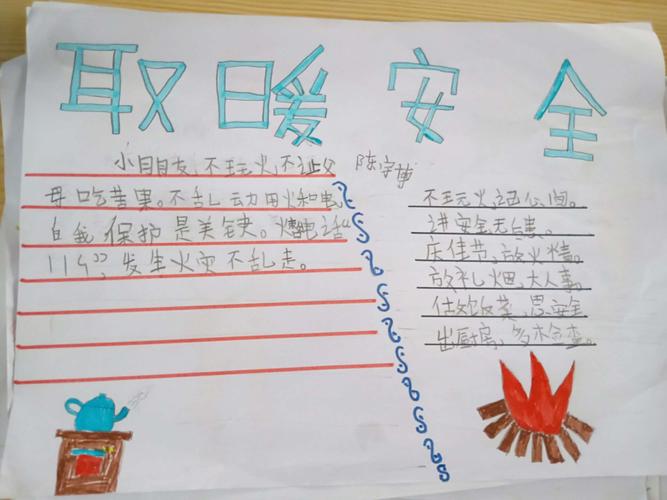 取暖安全
小朋友,不玩火,不让父
陈宇
母吃苦果。不乱动用火和电,
自我保护是关键。火警电话“
119”,发生火灾不乱走。
不玩火
讲安全无
庆佳节,放火
放礼烟,大人事。
做饭菜,思安全
出厨房,多检查。